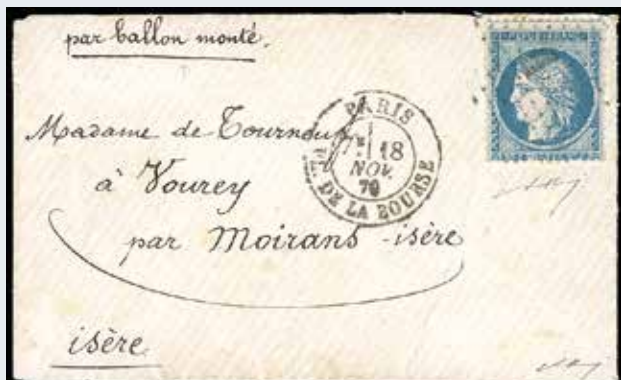 par ballon monté.
Madame de Tournoux
à Vourey
par Moirans - isère
isère
PARIS
7E 18
NOV.
70
PL. DE LA BOURSE